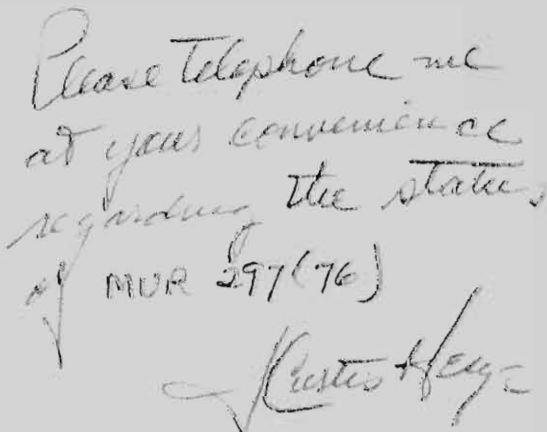 Please Telephone me
at your convenience
regarding the status
of MUR 297(76)
J Curtis Herge